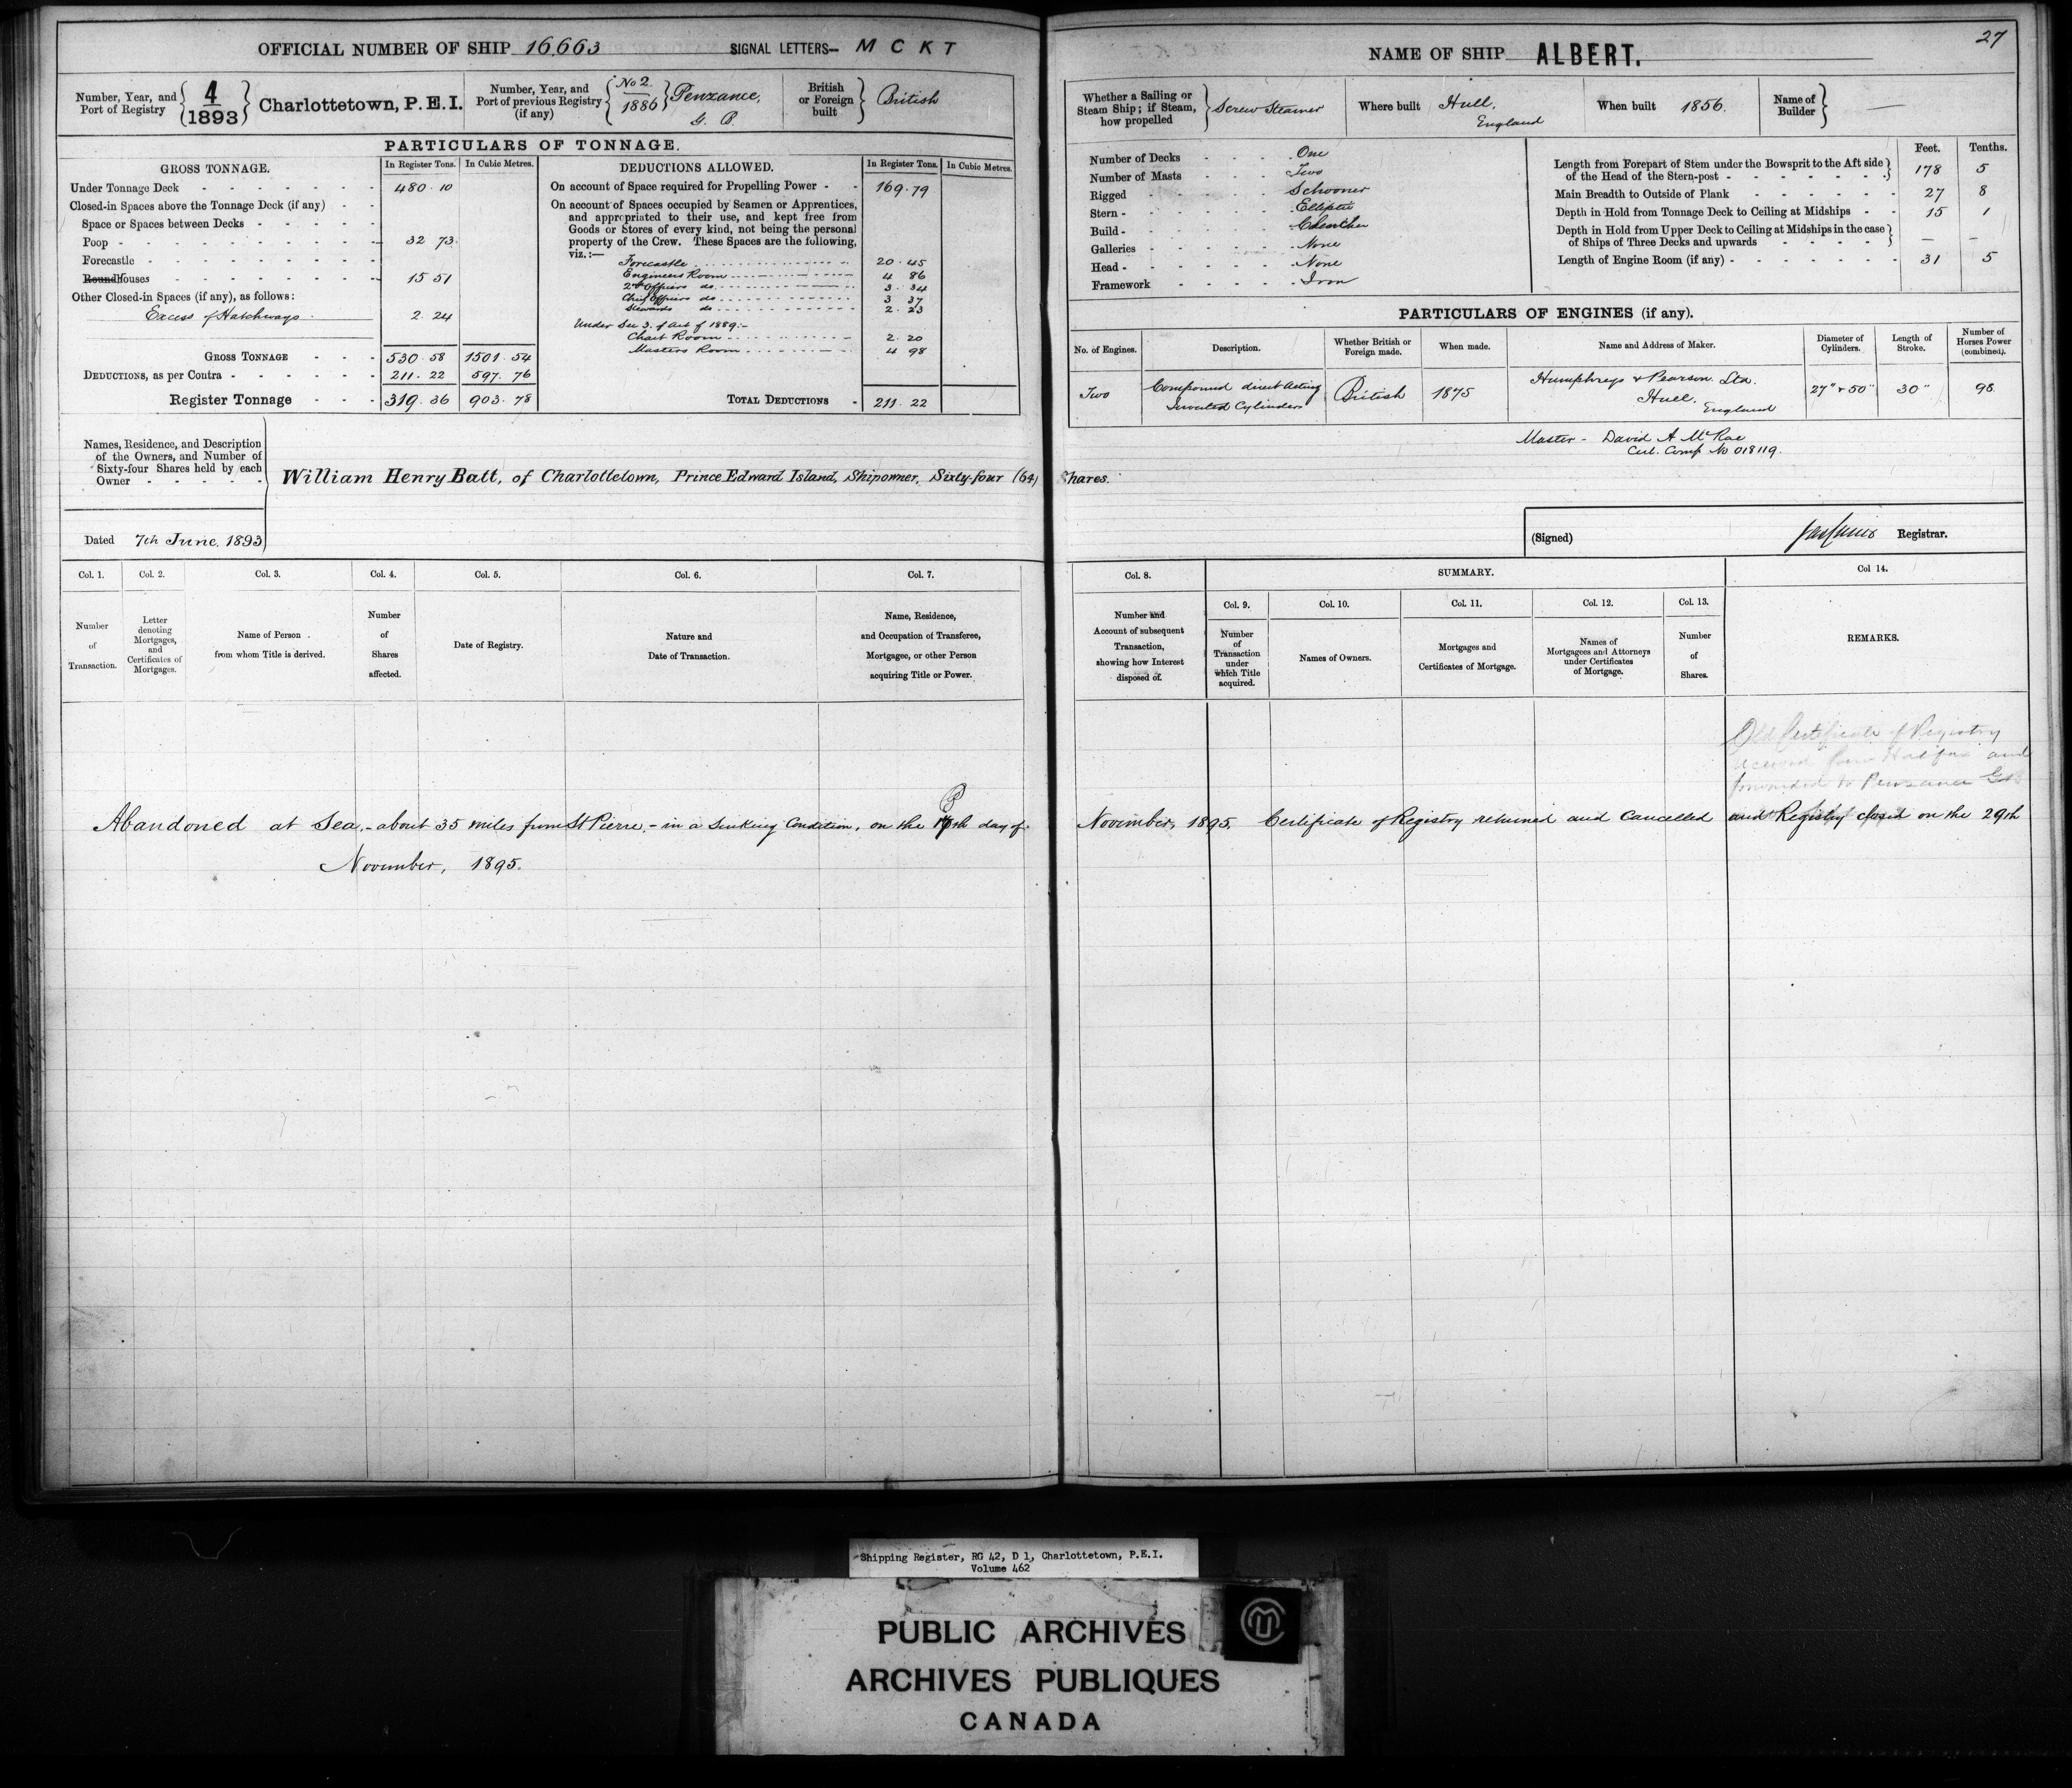 OFFICIAL NUMBER OF SHIP 16,663 SIGNAL LETTERS— M C K T
Number, Year, and Port of Registry { 4 / 1893 } Charlottetown, P.E.I.
Number, Year, and Port of previous Registry (if any) { No 2 / 1886 } Penzance, G. B.
British or Foreign built } British
PARTICULARS OF TONNAGE.
GROSS TONNAGE. In Register Tons. In Cubic Metres.
Under Tonnage Deck 480.10
Closed-in Spaces above the Tonnage Deck (if any)
Space or Spaces between Decks
Poop 32 73
Forecastle
Roundhouses 15 51
Other Closed-in Spaces (if any), as follows:
Excess of Hatchways 2.24
GROSS TONNAGE 530.58 1501.54
DEDUCTIONS, as per Contra 211.22 597.76
Register Tonnage 319.36 903.78
DEDUCTIONS ALLOWED. In Register Tons. In Cubic Metres.
On account of Space required for Propelling Power 169.79
On account of Spaces occupied by Seamen or Apprentices,
and appropriated to their use, and kept free from
Goods or Stores of every kind, not being the personal
property of the Crew. These Spaces are the following,
viz.:—
Forecastle 20.45
Engineers Room 4 86
2nd Officers do 3.34
Chief Officers do 3 37
Stewards do 2.23
Under Sec 3. of Act of 1889:-
Chart Room 2.20
Masters Room 4 98
TOTAL DEDUCTIONS 211.22
Names, Residence, and Description
of the Owners, and Number of
Sixty-four Shares held by each
Owner
William Henry Batt, of Charlottetown, Prince Edward Island, Shipowner, Sixty-four (64) Shares.
Dated 7th June, 1893
Col. 1. Col. 2. Col. 3. Col. 4. Col. 5. Col. 6. Col. 7.
Number of Transaction.
Letter denoting Mortgages, and Certificates of Mortgages.
Name of Person from whom Title is derived.
Number of Shares affected.
Date of Registry.
Nature and Date of Transaction.
Name, Residence, and Occupation of Transferee, Mortgagee, or other Person acquiring Title or Power.
Abandoned at Sea, - about 35 miles from St Pierre, - in a Sinking Condition, on the day of
November, 1895.
27
NAME OF SHIP ALBERT.
Whether a Sailing or Steam Ship; if Steam, how propelled } Screw Steamer
Where built Hull, England
When built 1856.
Name of Builder } —
Number of Decks One
Number of Masts Two
Rigged Schooner
Stern Elliptic
Build Clencher
Galleries None
Head None
Framework Iron
Feet. Tenths.
Length from Forepart of Stem under the Bowsprit to the Aft side of the Head of the Stern-post 178 5
Main Breadth to Outside of Plank 27 8
Depth in Hold from Tonnage Deck to Ceiling at Midships 15 1
Depth in Hold from Upper Deck to Ceiling at Midships in the case of Ships of Three Decks and upwards — —
Length of Engine Room (if any) 31 5
PARTICULARS OF ENGINES (if any).
No. of Engines. Description. Whether British or Foreign made. When made. Name and Address of Maker. Diameter of Cylinders. Length of Stroke. Number of Horses Power (combined).
Two Compound direct Acting Inverted Cylinders British 1875 Humphreys & Pearson Ltd. Hull, England 27" & 50" 30" 98
Master - David A McRae
Cert. Comp No 018119.
(Signed) Registrar.
Col. 8. SUMMARY. Col 14.
Col. 9. Col. 10. Col. 11. Col. 12. Col. 13.
Number and Account of subsequent Transaction, showing how Interest disposed of.
Number of Transaction under which Title acquired.
Names of Owners.
Mortgages and Certificates of Mortgage.
Names of Mortgagees and Attorneys under Certificates of Mortgage.
Number of Shares.
REMARKS.
Old Certificate of Registry
received from Halifax and
forwarded to Penzance G B
November, 1895. Certificate of Registry returned and Cancelled and Registry closed on the 29th
Shipping Register, RG 42, D 1, Charlottetown, P.E.I.
Volume 462
PUBLIC ARCHIVES
ARCHIVES PUBLIQUES
CANADA